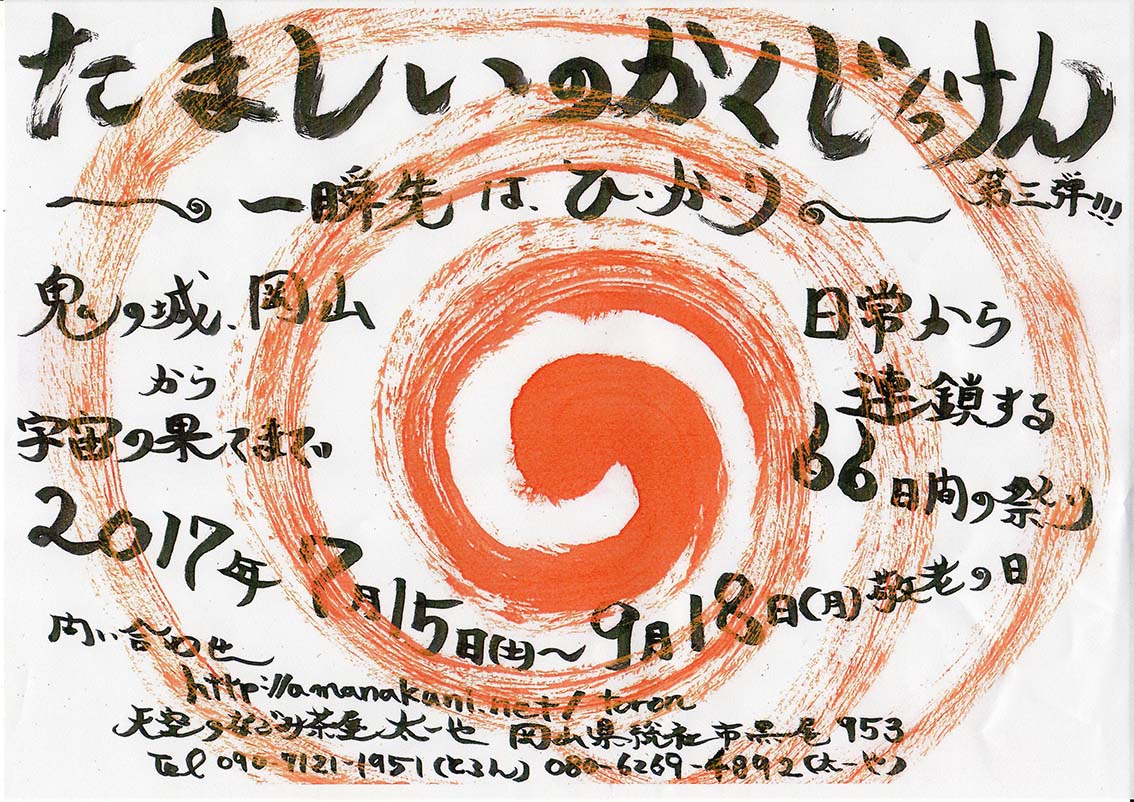 たましいのかくじっけん
第三弾!!!
一瞬先は、ひ・か・り
鬼の城、岡山
から
宇宙の果てまで
日常から
連鎖する
66日間の祭り
2017年7月15日(土)〜9月18日(月)敬老の日
問い合わせ
http://amanakuni.net/toron
天空のなごみ茶屋 太一也 岡山県総社市黒尾953
Tel 090-7121-1951(とろん) 080-6269-4892(太一也)